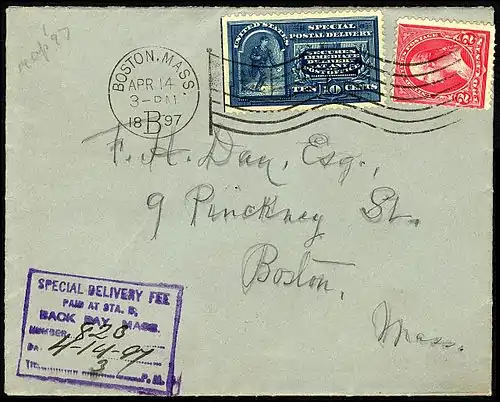 rec'd '97
BOSTON, MASS.
APR 14
3-PM
18 B 97
UNITED STATES
SPECIAL
POSTAL DELIVERY
SECURES
IMMEDIATE
DELIVERY
AT ANY
POST OFFICE
TEN 10 CENTS
2 2
F. H. Day, Esq.,
9 Pinckney St.
Boston,
Mass.
SPECIAL DELIVERY FEE
PAID AT STA. B,
BACK BAY, MASS.
NUMBER 828
DATE 4-14-97
TIME 3 P.M.